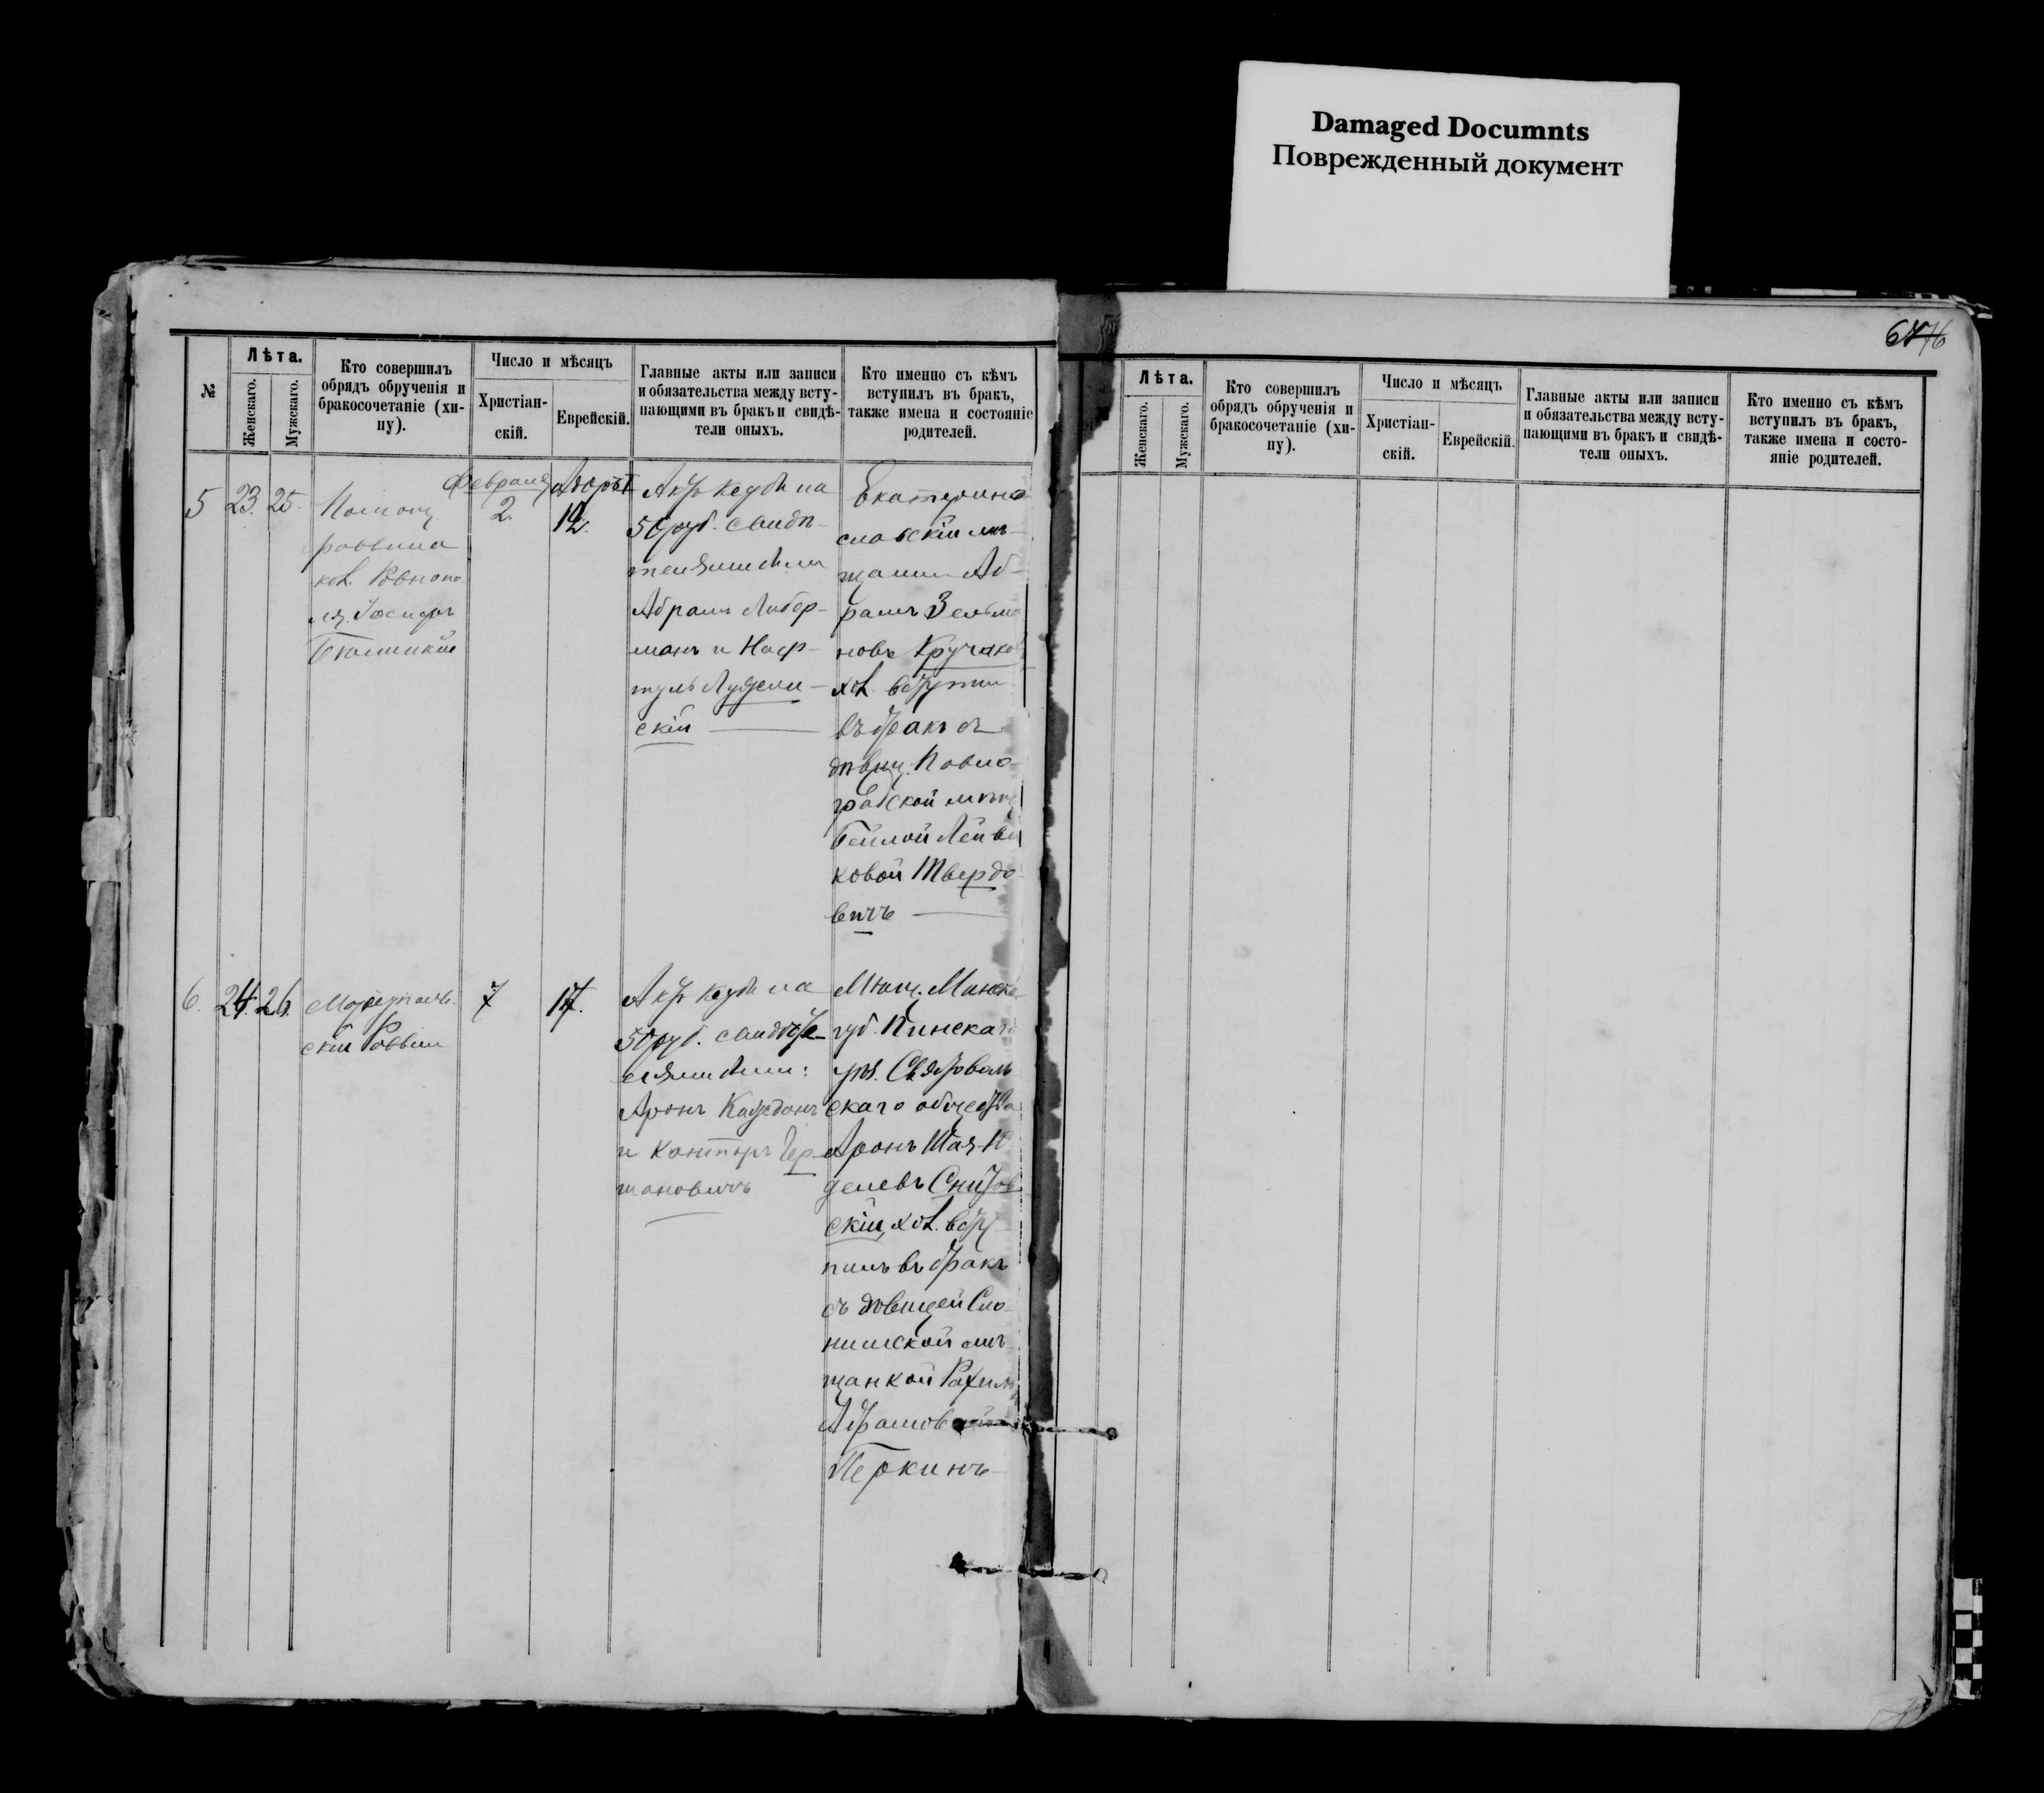 Damaged Documnts
Поврежденный документ
№
Лѣта.
Женскаго.
Мужскаго.
Кто совершилъ
обрядъ обрученія и
бракосочетаніе (хи-
пу).
Число и мѣсяцъ
Христіан-
скій.
Еврейскій.
Главные акты или записи
и обязательства между всту-
пающими въ бракъ и свидѣ-
тели оныхъ.
Кто именно съ кѣмъ
вступилъ въ бракъ,
также имена и состояніе
родителей.
5
23.
25.
Помощ.
раввина
кол. Ровнопо
ля
Февраля
2.
Адаръ
12.
Актъ кеуб. на
50 руб. свидѣ-
телями были
Абрамъ Либер-
манъ и Наф-
туль
скій
Екатерино
славскій мѣ-
щанин Аб-
рамъ Зельма
новъ Кручако
хол. вступи
въ бракъ съ
дѣвиц. Павло-
градской мѣщ
Бейлой Лейви
ковой Твердо
вичъ
6.
24.
26.
скій Раввин
7
17.
Актъ кеуб. на
50 руб. свидѣте-
лями были:
Аронъ
и Кантеръ Гер-
шановичъ
Мѣщ. Минско
губ. Пинскаго
скаго общества
Аронъ Шая-
делевъ Снитов
скій, хол. всту
пилъ въ бракъ
съ дѣвицей Сло-
нимской мѣ-
щанкой Рахиль
Абрамовой
Перкинъ
Лѣта.
Женскаго.
Мужскаго.
Кто совершилъ
обрядъ обрученія и
бракосочетаніе (хи-
пу).
Число и мѣсяцъ
Христіан-
скій.
Еврейскій.
Главные акты или записи
и обязательства между всту-
пающими въ бракъ и свидѣ-
тели оныхъ.
Кто именно съ кѣмъ
вступилъ въ бракъ,
также имена и состо-
яніе родителей.